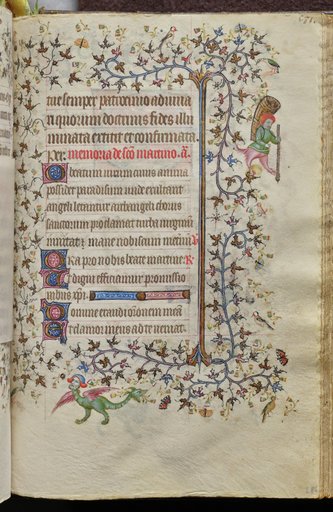 tue semper patrocinio adiuua
ri quorum doctrinis fides illu
minata extitit et confirmata.
Per. memoria de sco martino. a.
O beatum uirum cuius anima
possidet paradisum unde exultant
angeli letantur archangeli chorus
sanctorum proclamat turba uirginum
inuitat mane nobiscum
Ora pro nobis beate martine. R
Ut digni efficiamur promissio
nibus xpi.
Domine exaudi oronem mea
et clamor meus ad te ueniat.